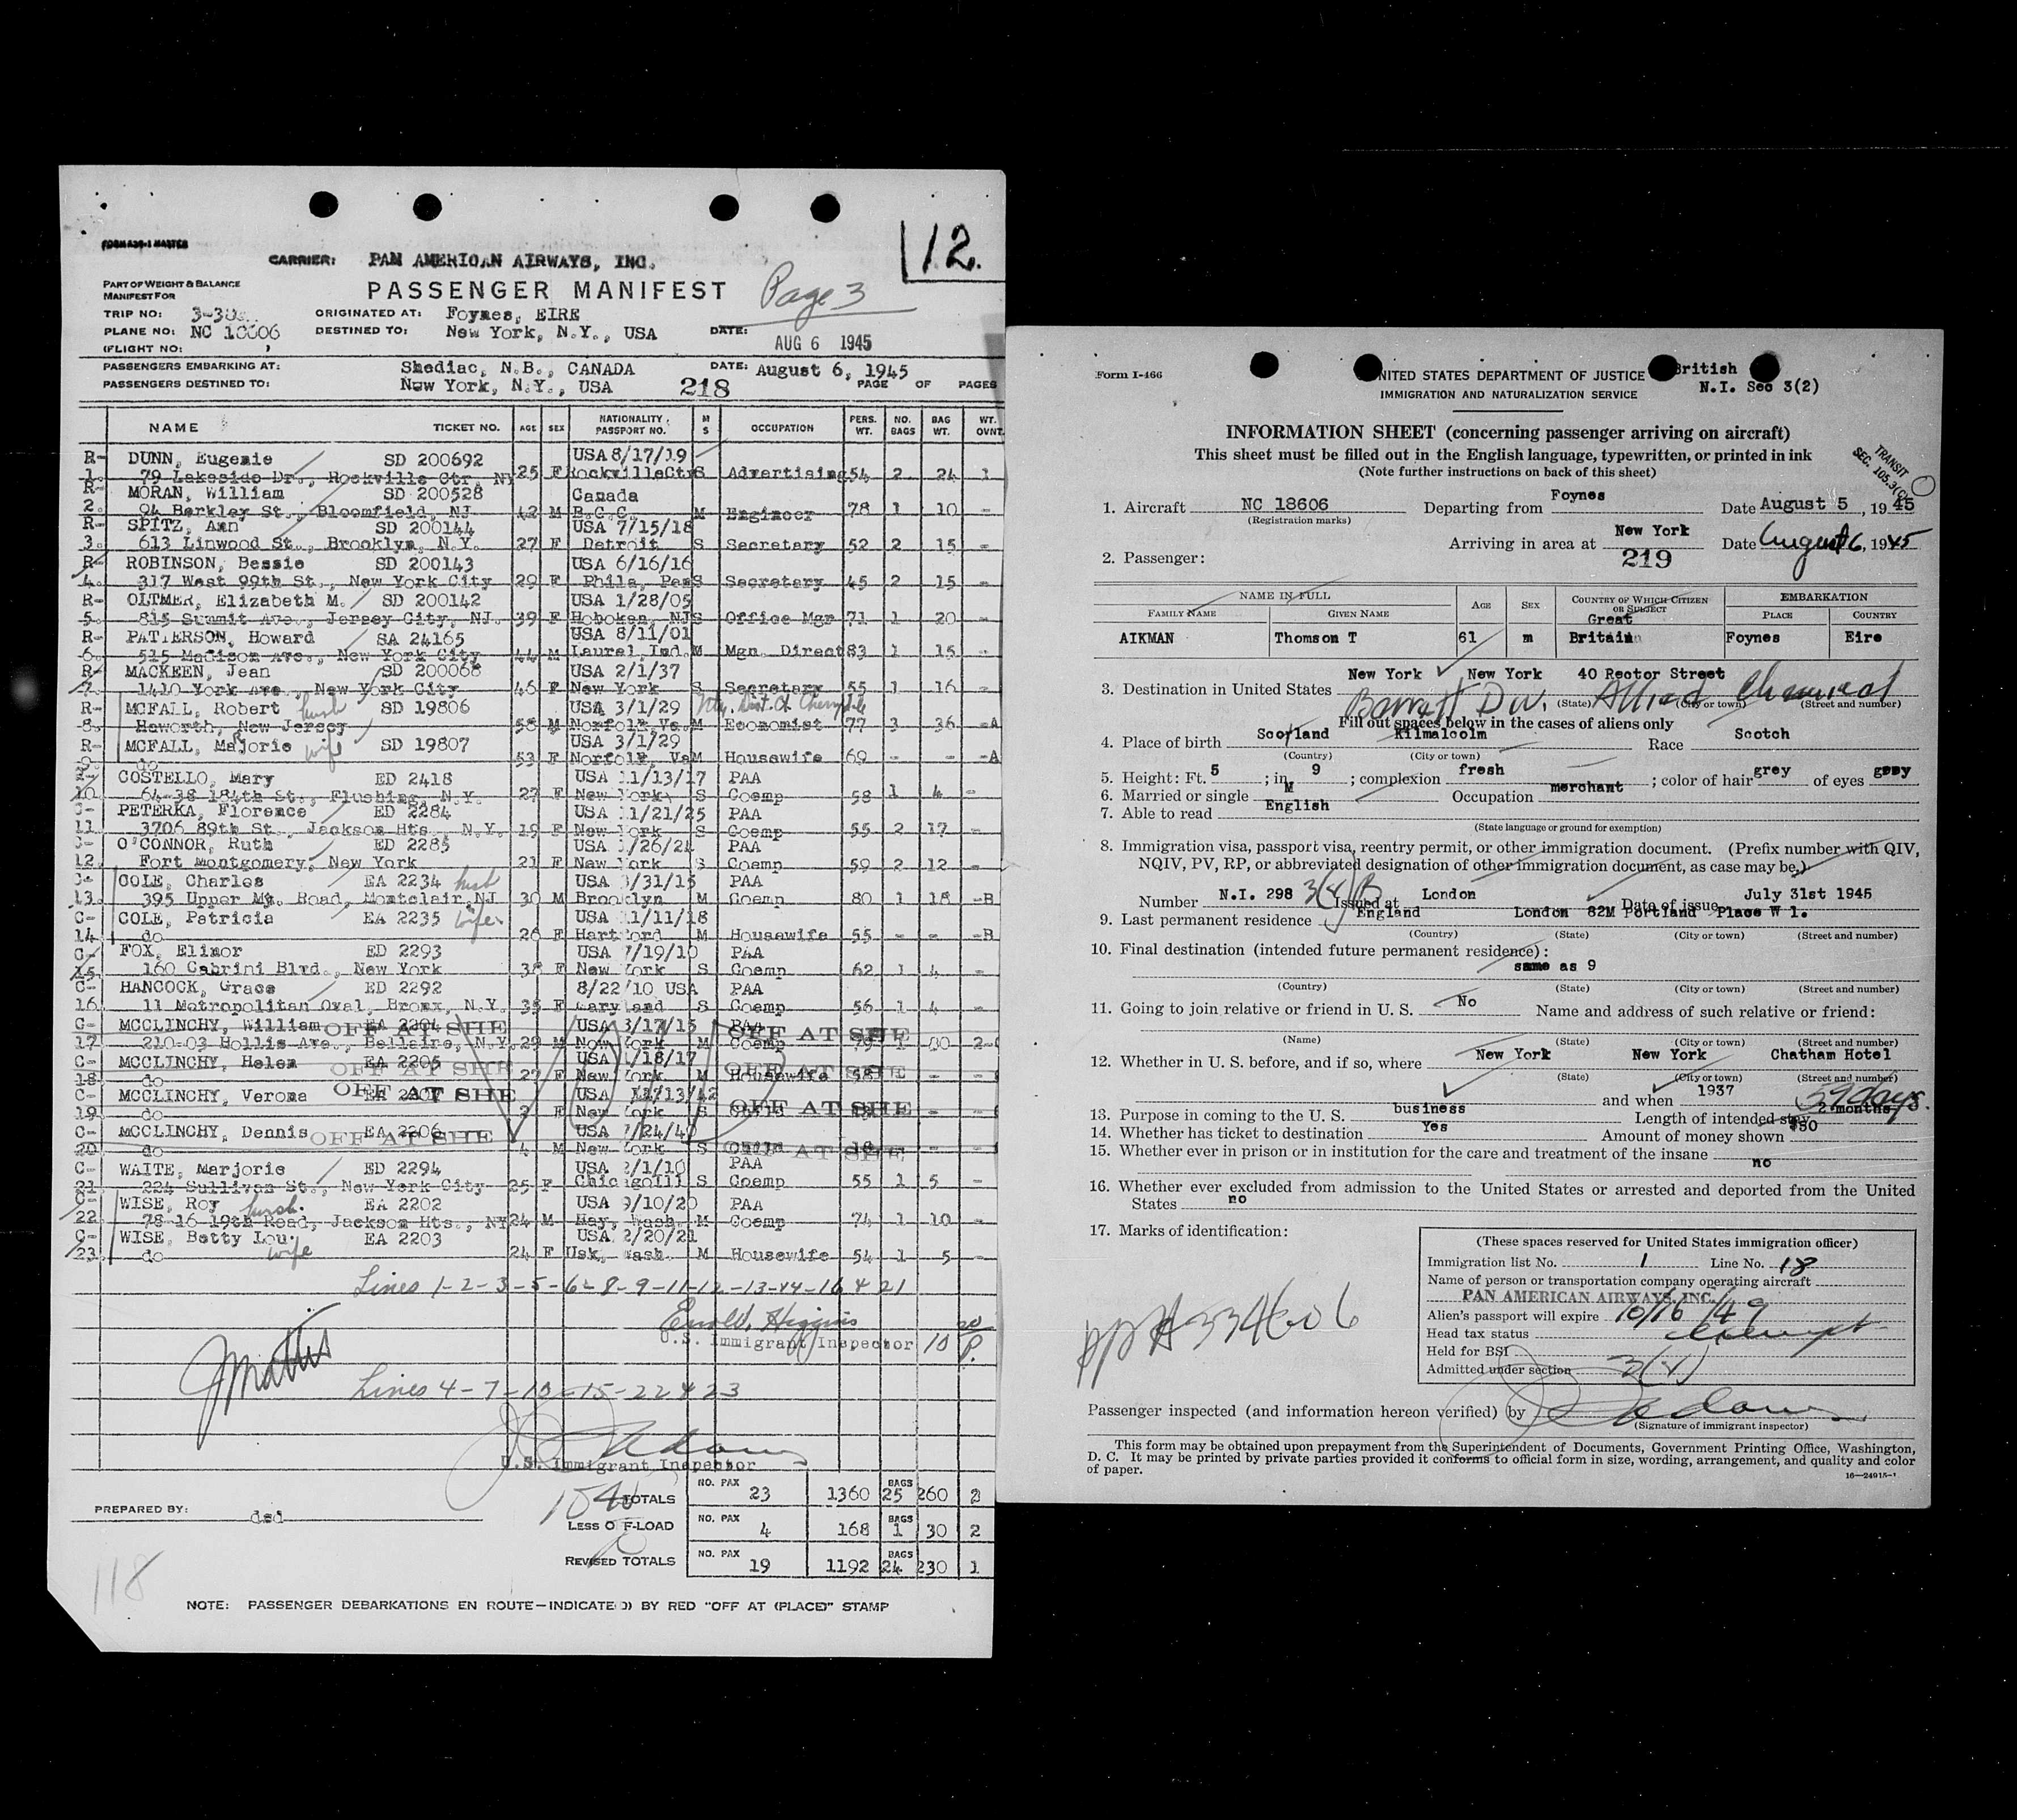 FORM A30-1 MASTER
12.
CARRIER: PAN AMERICAN AIRWAYS, INC.
PART OF WEIGHT & BALANCE
MANIFEST FOR
PASSENGER MANIFEST
Page 3
TRIP NO: ORIGINATED AT: Foynes, EIRE
PLANE NO: DESTINED TO: New York, N.Y., USA DATE:
AUG 6 1945
(FLIGHT NO: )
PASSENGERS EMBARKING AT: Shediac, N.B., CANADA DATE: August 6, 1945
PASSENGERS DESTINED TO: New York, N.Y., USA 218 PAGE OF PAGES
NAME TICKET NO. AGE SEX NATIONALITY PASSPORT NO. M S OCCUPATION PERS. WT. NO. BAGS BAG WT. WT. OVNT.
R- DUNN, Eugenie SD 200692 USA 8/17/19
1. 79 Lakeside Dr., Rockville Ctr, NY 25 F RockvilleCtr S Advertising 54 2 24 1
R- MORAN, William SD 200528 Canada
2. 94 Berkley St., Bloomfield, NJ. 42 M B.C.C. M Engineer 78 1 10 -
R- SPITZ, Ann SD 200144 USA 7/15/18
3. 613 Linwood St., Brooklyn, N.Y. 27 F Detroit S Secretary 52 2 15 -
R- ROBINSON, Bessie SD 200143 USA 6/16/16
4. 317 West 99th St., New York City 29 F Phila, Pen S Secretary 45 2 15 -
R- OLTMER, Elizabeth M. SD 200142 USA 1/28/05
5. 815 Summit Ave., Jersey City, NJ. 39 F Hoboken, NJ S Office Mgr 71 1 20 -
R- PATTERSON, Howard SA 24165 USA 8/11/01
6. 515 Madison Ave., New York City 44 M Laurel, Ind. M Mgn. Direct 83 1 15 -
R- MACKEEN, Jean SD 200068 USA 2/1/37
7. 1410 York Ave., New York City 46 F New York S Secretary 55 1 16 -
R- MCFALL, Robert husb SD 19806 USA 3/1/29
8. Haworth, New Jersey 58 M Norfolk, Va. M Economist 77 3 36 -A
R- MCFALL, Marjorie wife SD 19807 USA 3/1/29
9. do 53 F Norfolk, Va M Housewife 69 - - -A
COSTELLO, Mary ED 2418 USA 11/13/17 PAA
10. 64-38 184th St., Flushing, N.Y. 27 F New York S Coemp 58 1 4 -
C- PETERKA, Florence ED 2284 USA 11/21/25 PAA
11 3706 89th St., Jackson Hts., N.Y. 19 F New York S Coemp 55 2 17 -
C- O'CONNOR, Ruth ED 2285 USA /26/24 PAA
12. Fort Montgomery, New York 21 F New York S Coemp 59 2 12 -
C- COLE, Charles EA 2234 husb USA 3/31/15 PAA
13. 395 Upper Mt. Road, Montclair, NJ 30 M Brooklyn M Coemp 80 1 18 -B
C- COLE, Patricia EA 2235 wife USA 11/11/18
14 do 26 F Hartford M Housewife 55 - - -B
C- FOX, Elinor ED 2293 USA 7/19/10 PAA
15. 160 Cabrini Blvd., New York F New York S Coemp 62 1 4 -
C- HANCOCK, Grace ED 2292 8/22/10 USA PAA
16. 11 Metropolitan Oval, Bronx, N.Y. 35 F Maryland S Coemp 56 1 4 -
C- MCCLINCHY, William EA 2204 OFF AT SHE USA 3/17/15 PAA OFF AT SHE
17 210-03 Hollis Ave., Bellaire, N.Y. 29 M New York M Coemp
C- MCCLINCHY, Helen EA 2205 OFF AT SHE USA /18/17 OFF AT SHE
18. do 27 F New York M Housewife 58 - -
C- MCCLINCHY, Verona OFF AT SHE USA 12/13/42 OFF AT SHE
19. do 2 F New York S - -
C- MCCLINCHY, Dennis EA 2206 OFF AT SHE USA 7/24/40
20. do 4 M New York S Child AT SHE - -
C- WAITE, Marjorie ED 2294 USA 2/1/10 PAA
21. 224 Sullivan St., New York City 25 F Chicago Ill S Coemp 55 1 5 -
C- WISE, Roy husb. EA 2202 USA 9/10/20 PAA
22. 78-16 19th Road, Jackson Hts., NY 24 M Hay, Wash. M Coemp 74 1 10 -
C- WISE, Betty Lou wife EA 2203 USA 2/20/21
23. do 24 F Usk, Wash. M Housewife 54 1 5 -
Lines 1-2-3-5-6-8-9-11-12-13-14-16 & 21
U.S. Immigrant Inspector 10
Lines 4-7-10-15-22 & 23
U.S. Immigrant Inspector
TOTALS NO. PAX 23 1360 BAGS 25 260 2
PREPARED BY: ded
LESS OFF-LOAD NO. PAX 4 168 BAGS 1 30 2
REVISED TOTALS NO. PAX 19 1192 BAGS 24 230 1
118
NOTE: PASSENGER DEBARKATIONS EN ROUTE—INDICATED BY RED "OFF AT (PLACE)" STAMP
Form I-466
UNITED STATES DEPARTMENT OF JUSTICE
IMMIGRATION AND NATURALIZATION SERVICE
British
N.I. Sec 3(2)
INFORMATION SHEET (concerning passenger arriving on aircraft)
This sheet must be filled out in the English language, typewritten, or printed in ink
(Note further instructions on back of this sheet)
TRANSIT
1. Aircraft NC 18606 Departing from Foynes Date August 5, 1945
(Registration marks)
Arriving in area at New York Date August 6, 1945
2. Passenger: 219
NAME IN FULL AGE SEX COUNTRY OF WHICH CITIZEN OR SUBJECT EMBARKATION
FAMILY NAME GIVEN NAME PLACE COUNTRY
AIKMAN Thomson T 61 m Great Britain Foynes Eire
3. Destination in United States New York New York 40 Rector Street
(State) (City or town) (Street and number)
Barrett Div. Allied Chemical
Fill out spaces below in the cases of aliens only
4. Place of birth Scotland Kilmalcolm Race Scotch
(Country) (City or town)
5. Height: Ft. 5; in. 9; complexion fresh; color of hair grey of eyes grey
6. Married or single M Occupation merchant
7. Able to read English
(State language or ground for exemption)
8. Immigration visa, passport visa, reentry permit, or other immigration document. (Prefix number with QIV,
NQIV, PV, RP, or abbreviated designation of other immigration document, as case may be.)
Number N.I. 298 3(4)B Issued at London Date of issue July 31st 1945
9. Last permanent residence England London 82M Portland Place W 1.
(Country) (State) (City or town) (Street and number)
10. Final destination (intended future permanent residence):
same as 9
(Country) (State) (City or town) (Street and number)
11. Going to join relative or friend in U. S. No Name and address of such relative or friend:
(Name) (State) (City or town) (Street and number)
12. Whether in U. S. before, and if so, where New York New York Chatham Hotel
(State) (City or town) (Street and number)
and when 1937
13. Purpose in coming to the U. S. business Length of intended stay 2 months
14. Whether has ticket to destination Yes Amount of money shown $80
15. Whether ever in prison or in institution for the care and treatment of the insane no
16. Whether ever excluded from admission to the United States or arrested and deported from the United
States no
17. Marks of identification:
(These spaces reserved for United States immigration officer)
Immigration list No. 1 Line No. 18
Name of person or transportation company operating aircraft
PAN AMERICAN AIRWAYS, INC.
Alien's passport will expire 10/16/49
Head tax status exempt
Held for BSI
Admitted under section 3(4)
Passenger inspected (and information hereon verified) by
(Signature of immigrant inspector)
This form may be obtained upon prepayment from the Superintendent of Documents, Government Printing Office, Washington,
D. C. It may be printed by private parties provided it conforms to official form in size, wording, arrangement, and quality and color
of paper.
16—24915-1